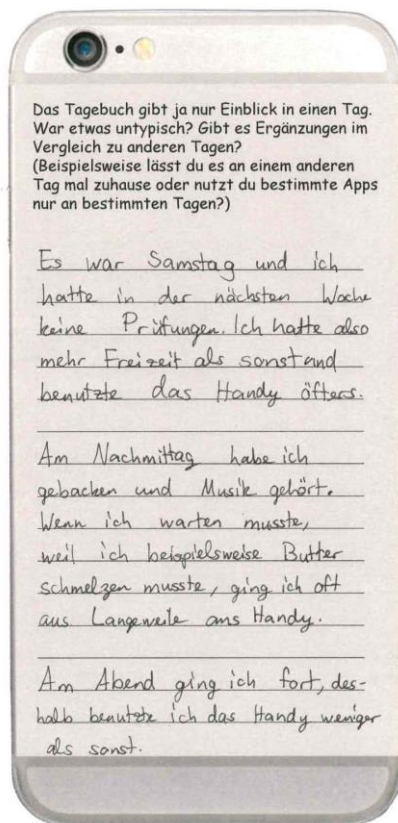 Das Tagebuch gibt ja nur Einblick in einen Tag.
War etwas untypisch? Gibt es Ergänzungen im
Vergleich zu anderen Tagen?
(Beispielsweise lässt du es an einem anderen
Tag mal zuhause oder nutzt du bestimmte Apps
nur an bestimmten Tagen?)
Es war Samstag und ich
hatte in der nächsten Woche
keine Prüfungen. Ich hatte also
mehr Freizeit als sonst und
benutzte das Handy öfters.
Am Nachmittag habe ich
gebacken und Musik gehört.
Wenn ich warten musste,
weil ich beispielsweise Butter
schmelzen musste, ging ich oft
aus Langeweile ans Handy.
Am Abend ging ich fort, des-
halb benutzte ich das Handy weniger
als sonst.